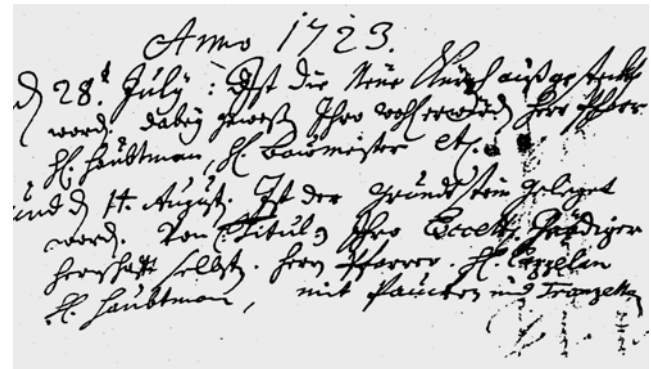 Anno 1723.
d 28t. July: Ist die Neue Kürch außgesteckt
word. dabey geweß Ihro wohl erwürd, Herr Pfarr
H. Haubtman, H. Baumeister etc.
und d 14. August. Ist der grundtstein geleget
word. Von Titul: Ihro Excell. Gnädiger
Herrschafft selbst. Herrn Pfarrer. H. Capellan
H. Haubtman, mit Paucken und Trompetten